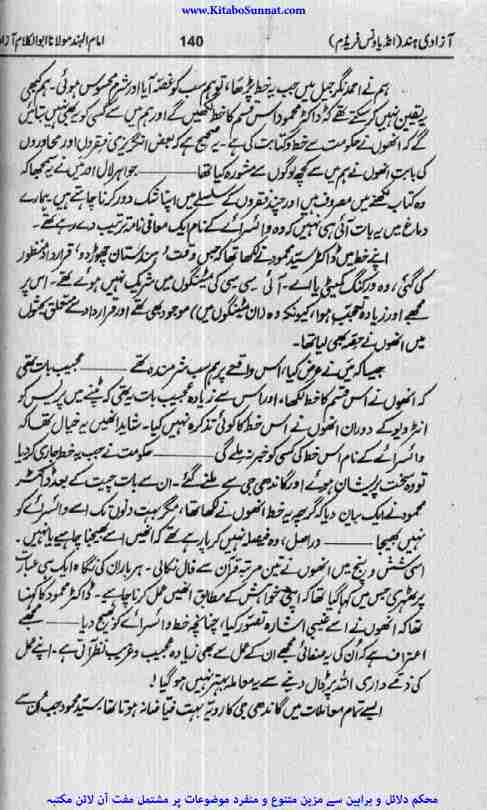 www.KitaboSunnat.com
آزادی ہند (انڈیا ونس فریڈم)
140
امام الہند مولانا ابوالکلام آزاد
ہم نے احمد نگر جیل میں جب یہ خط پڑھا، تو ہم سب کو غصّہ آیا اور شرم محسوس ہوئی۔ ہم کبھی
یقین نہیں کر سکتے تھے کہ ڈاکٹر محمود اس قسم کا خط لکھیں گے اور ہم میں سے کسی کو یہ بھی نہیں بتائیں
گے کہ انھوں نے حکومت سے خط و کتابت کی ہے۔ یہ صحیح ہے کہ بعض انگریزی فقروں اور محاوروں
کی بابت انھوں نے ہم میں سے کچھ لوگوں سے مشورہ کیا تھا ——— جواہر لال اور میں نے یہ سمجھا کہ
وہ کتاب لکھنے میں مصروف ہیں اور چند فقروں کے سلسلے میں اپنا شک دور کرنا چاہتے ہیں۔ ہمارے
دماغ میں یہ بات آئی ہی نہیں کہ وہ وائسرائے کے نام ایک معافی نامہ ترتیب دے رہے تھے۔
اپنے خط میں ڈاکٹر سید محمود نے لکھا تھا کہ جس وقت 'ہندستان چھوڑ دو' قرارداد منظور
کی گئی، وہ ورکنگ کمیٹی یا اے۔ آئی۔ سی سی کی میٹنگوں میں شریک نہیں ہوئے تھے۔ اس پر
مجھے اور زیادہ تعجب ہوا، کیونکہ وہ (ان میٹنگوں میں) موجود بھی تھے اور قرارداد سے متعلق بحثوں
میں انھوں نے حصّہ بھی لیا تھا۔
جیسا کہ میں نے عرض کیا، اس واقعے پر ہم سب شرمندہ تھے ——— عجیب بات تھی
کہ انھوں نے اس قسم کا خط لکھا، اور اس سے زیادہ عجیب بات یہ تھی کہ پٹنے میں پریس کو
انٹرویو کے دوران انھوں نے اس خط کا کوئی تذکرہ نہیں کیا۔ شاید انھیں یہ خیال تھا کہ
وائسرائے کے نام اس خط کی کسی کو خبر نہ ملے گی ——— حکومت نے جب یہ خط جاری کر دیا
تو وہ سخت پریشان ہوئے اور گاندھی جی سے ملنے گئے۔ ان سے بات چیت کے بعد ڈاکٹر
محمود نے ایک بیان دیا کہ گرچہ یہ خط انھوں نے لکھا تھا، مگر بہت دنوں تک اسے وائسرائے کو
نہیں بھیجا ——— دراصل، وہ فیصلہ نہیں کر پا رہے تھے کہ انھیں اسے بھیجنا چاہیے یا نہیں۔
اسی کشش و پنج میں انھوں نے تین مرتبہ قرآن سے فال نکالی۔ ہر بار ان کی نگاہ ایک سی عبارت
پر ٹھہری جس میں کہا گیا تھا کہ اپنی خواہش کے مطابق انھیں عمل کرنا چاہیے۔ ڈاکٹر محمود کا کہنا
تھا کہ انھوں نے اسے غیبی اشارہ تصوّر کیا، چنانچہ خط وائسرائے کو بھیج دیا ——— مجھے
اعتراف ہے کہ ان کی یہ صفائی مجھے ان کے عمل سے بھی زیادہ عجیب و غریب نظر آتی ہے۔ اپنے عمل
کی ذمّے داری اللہ پر ڈال دینے سے یہ معاملہ بہتر نہیں ہو گیا!
ایسے تمام معاملات میں گاندھی جی کا رویہ بہت فیاضانہ ہوتا تھا۔ سید محمود جب ان سے
محکم دلائل و براہین سے مزین متنوع و منفرد موضوعات پر مشتمل مفت آن لائن مکتبہ